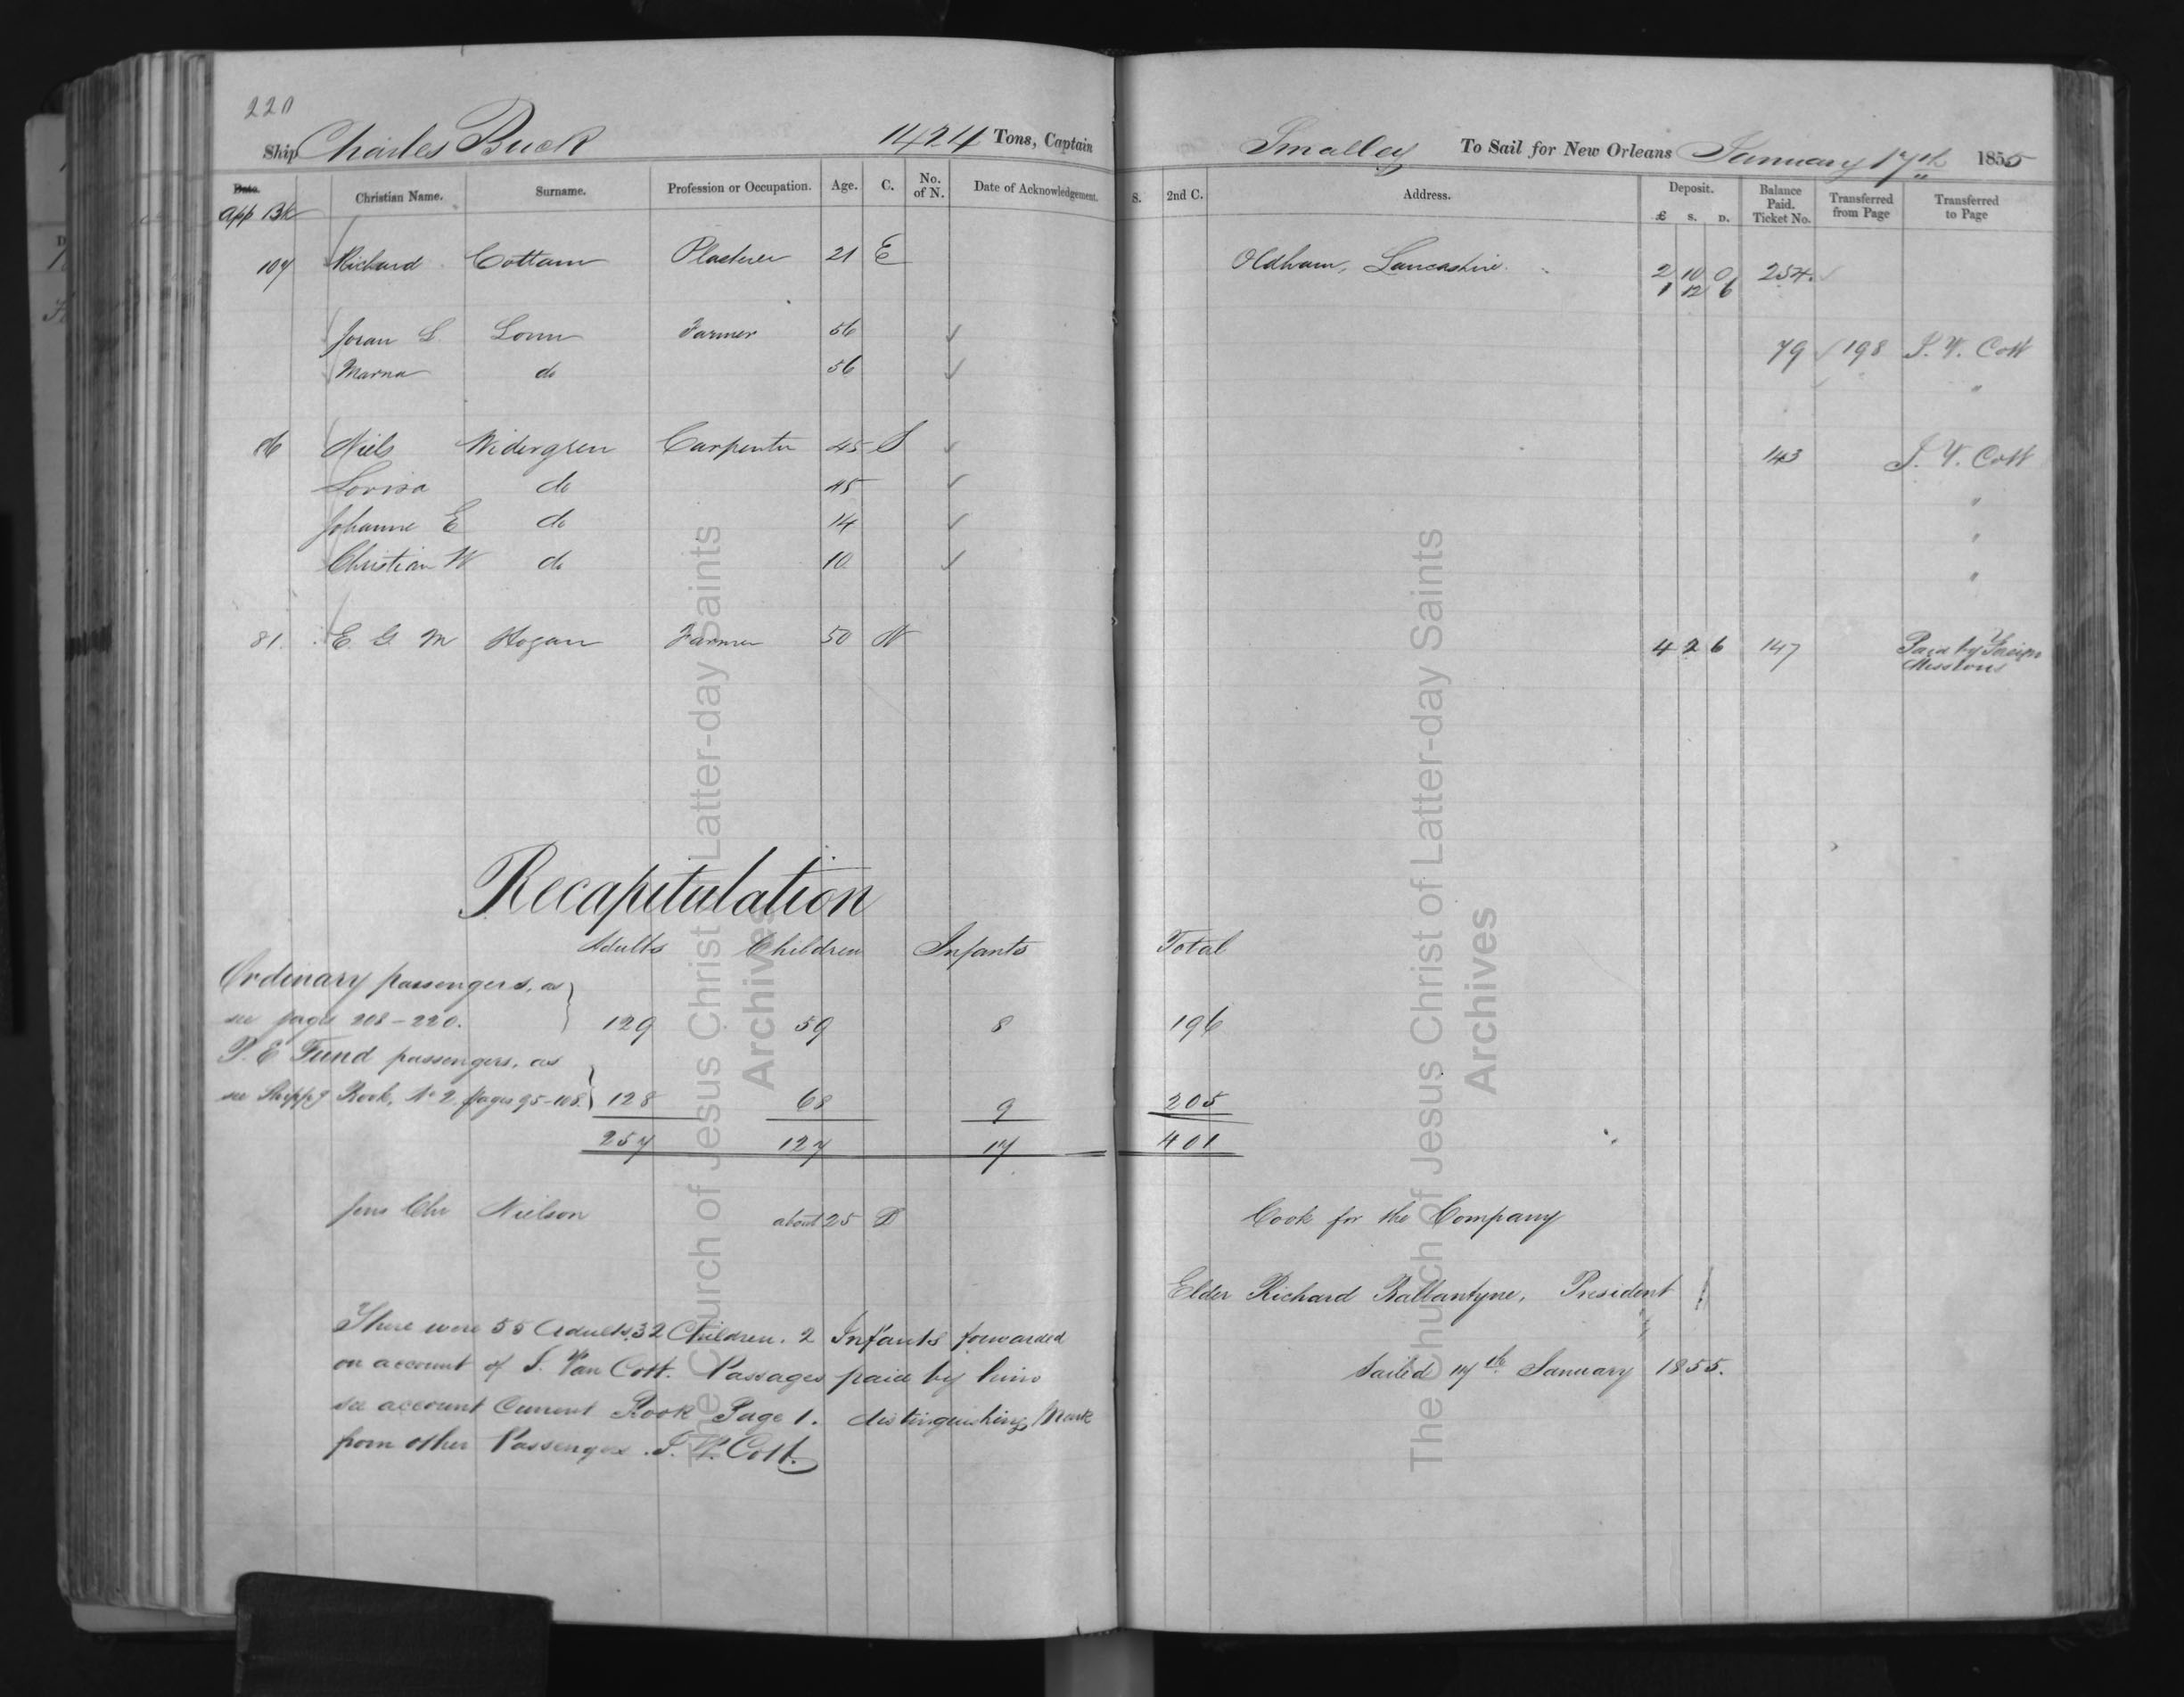 220
Ship Charles Buck 1424 Tons, Captain Smalley To Sail for New Orleans January 17th 1855
Date. Christian Name. Surname. Profession or Occupation. Age. C. No. of N. Date of Acknowledgement. S. 2nd C. Address. Deposit. £ S. D. Balance Paid. Ticket No. Transferred from Page Transferred to Page
App Bk
107 Richard Cottam Plasterer 21 E Oldham, Lancashire. 2 10 0 254
1 12 6
Joran L Lonn Farmer 56 ✓ 79 ✓ 198 J. V. Cott
Marna do 56 ✓ "
86 Niels Widergren Carpenter 45 S ✓ 143 J. V. Cott
Lovisa do 45 ✓ "
Johanne E do 14 ✓ "
Christian W do 10 ✓ "
81. E G M Hogan Farmer 50 N 4 2 6 147 Paid by
Missions
Recapitulation
Adults Children Infants Total
Ordinary passengers, as
see pages 208-220. } 129 59 8 196
P. E Fund passengers, as
see Shippg Book, No 2. pages 95-108. } 128 68 9 205
257 127 17 401
Jens Chr Nielson about 25 D Cook for the Company
Elder Richard Ballantyne, President
There were 55 Adults, 32 Children. 2 Infants forwarded
on account of J. Van Cott. Passages paid by him
see account Current Book Page 1. distinguishing Mark
from other Passengers. J. V. Cott.
Sailed 17th January 1855.
The Church of Jesus Christ of Latter-day Saints
Archives
The Church of Jesus Christ of Latter-day Saints
Archives